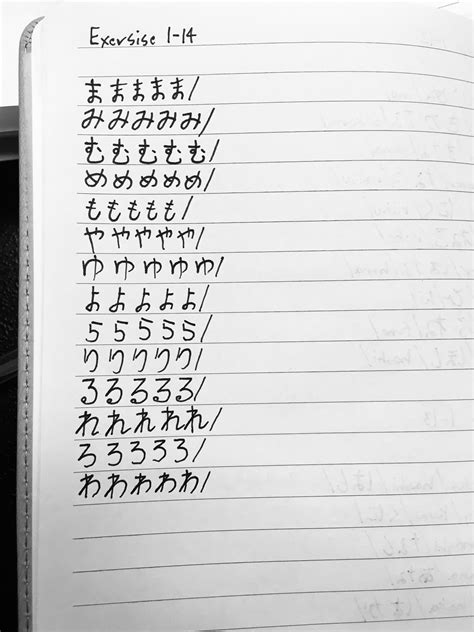 Exersise 1-14
ままままま/
みみみみみ/
むむむむむ/
めめめめめ/
ももももも/
ややややや/
ゆゆゆゆゆ/
よよよよよ/
ららららら/
りりりりり/
るるるるる/
れれれれれ/
ろろろろろ/
わわわわわ/